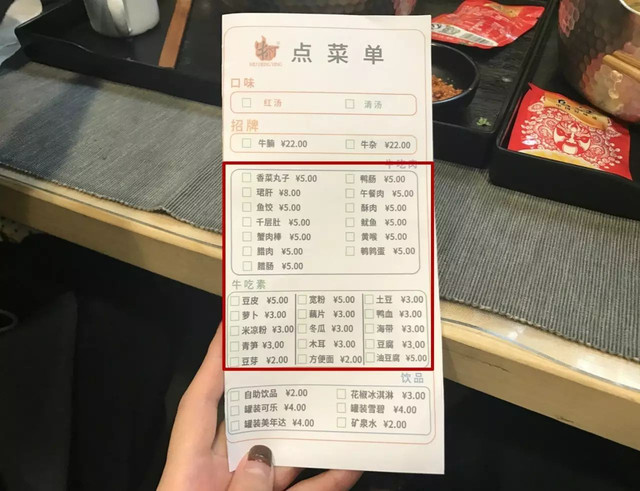 点菜单
口味
红汤 清汤
招牌
牛腩 ¥22.00 牛杂 ¥22.00
牛吃肉
香菜丸子 ¥5.00 鸭肠 ¥5.00
珺肝 ¥8.00 午餐肉 ¥5.00
鱼饺 ¥5.00 酥肉 ¥5.00
千层肚 ¥5.00 鱿鱼 ¥5.00
蟹肉棒 ¥5.00 黄喉 ¥5.00
腊肉 ¥5.00 鹌鹑蛋 ¥5.00
腊肠 ¥5.00
牛吃素
豆皮 ¥5.00 宽粉 ¥5.00 土豆 ¥3.00
萝卜 ¥3.00 藕片 ¥3.00 鸭血 ¥3.00
米凉粉 ¥3.00 冬瓜 ¥3.00 海带 ¥3.00
青笋 ¥3.00 木耳 ¥3.00 豆腐 ¥3.00
豆芽 ¥2.00 方便面 ¥2.00 油豆腐 ¥5.00
饮品
自助饮品 ¥2.00 花椒冰淇淋 ¥3.00
罐装可乐 ¥4.00 罐装雪碧 ¥4.00
罐装美年达 ¥4.00 矿泉水 ¥2.00